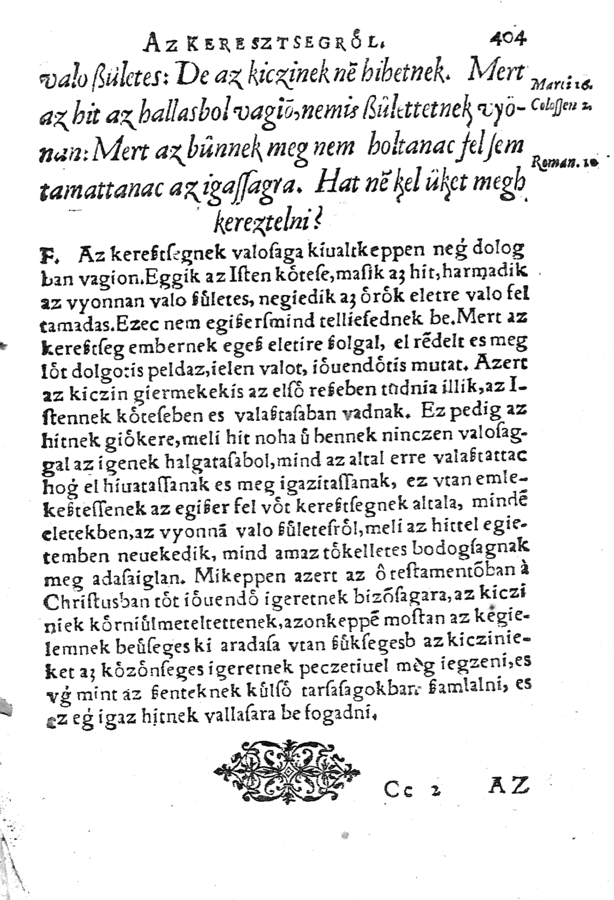 AZ KERESZTSEGRŐL. 404
valo ßületes: De az kiczinek nē hihetnek. Mert
Marci 16.
az hit az hallasbol vagiō, nemis ßülettetnek vyó-
Colossen 2.
nan: Mert az bűnnek meg nem holtanac fel sem
Roman. 10
tamattanac az igassagra. Hat nē kel üket megh
kereztelni?
F. Az kereßtsegnek valosaga kiualtkeppen neǵ dolog
ban vagion. Eggik az Isten kőtese, masik az hit, harmadik
az vyonnan valo ßűletes, negiedik az őrők eletre valo fel
tamadas. Ezec nem egißersmind telliesednek be. Mert az
kereßtseg embernek egeß eletire ßolgal, el rēdelt es meg
lőt dolgotis peldaz, ielen valot, iőuendőtis mutat. Azert
az kiczin giermekekis az első reßeben tudnia illik, az I-
stennek kőteseben es valaßtasaban vadnak. Ez pedig az
hitnek giőkere, meli hit noha ű bennek ninczen valosag-
gal az igenek halgatasabol, mind az altal erre valaßtattac
hoǵ el hiuatassanak es meg igazitassanak, ez vtan emle-
keßtessenek az egißer fel vőt kereßtsegnek altala, mindē
eletekben, az vyonnā valo ßűletesről, meli az hittel egie-
temben neuekedik, mind amaz tőkelletes bodogsagnak
meg adasaiglan. Mikeppen azert az ő testamentōban à
Christusban tőt iőuendő igeretnek bizōsagara, az kiczi
niek kőrniűlmeteltettenek, azonkeppē mostan az kegie-
lemnek beűseges ki aradasa vtan ßűksegesb az kiczinie-
ket az kőzőnseges igeretnek peczetiuel mèg iegzeni, es
vǵ mint az ßenteknek kűlső tarsasagokban ßamlalni, es
ez eǵ igaz hitnek vallasara be fogadni.
Cc 2 AZ